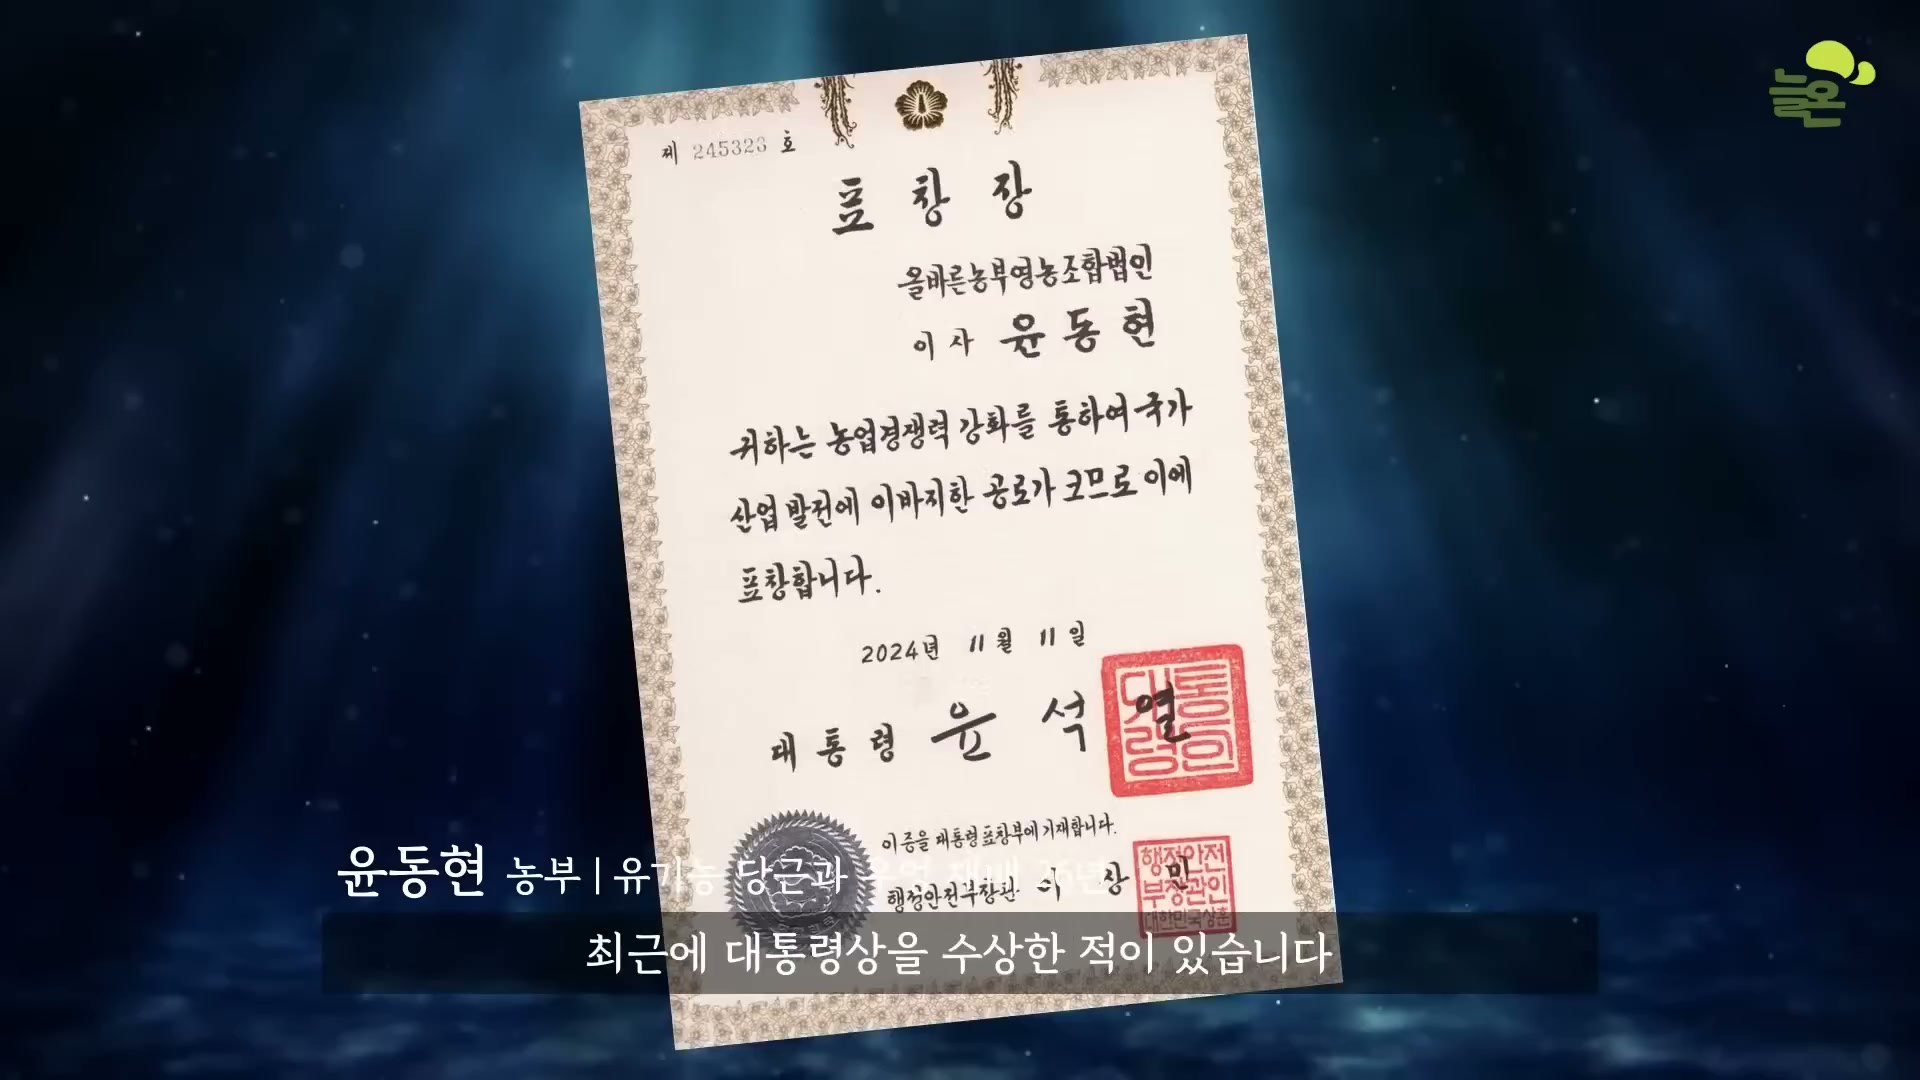 늘온
제 245323 호
표 창 장
올바른농부영농조합법인
이사 윤동현
귀하는 농업경쟁력 강화를 통하여 국가
산업발전에 이바지한 공로가 크므로 이에
표창합니다.
2024년 11월 11일
대통령 윤석열
대통령인
이 증을 대통령표창부에 기재합니다.
행정안전부장관 이상민
행정안전부장관인
윤동현 농부 | 유기농 당근과 우엉 재배 26년
최근에 대통령상을 수상한 적이 있습니다